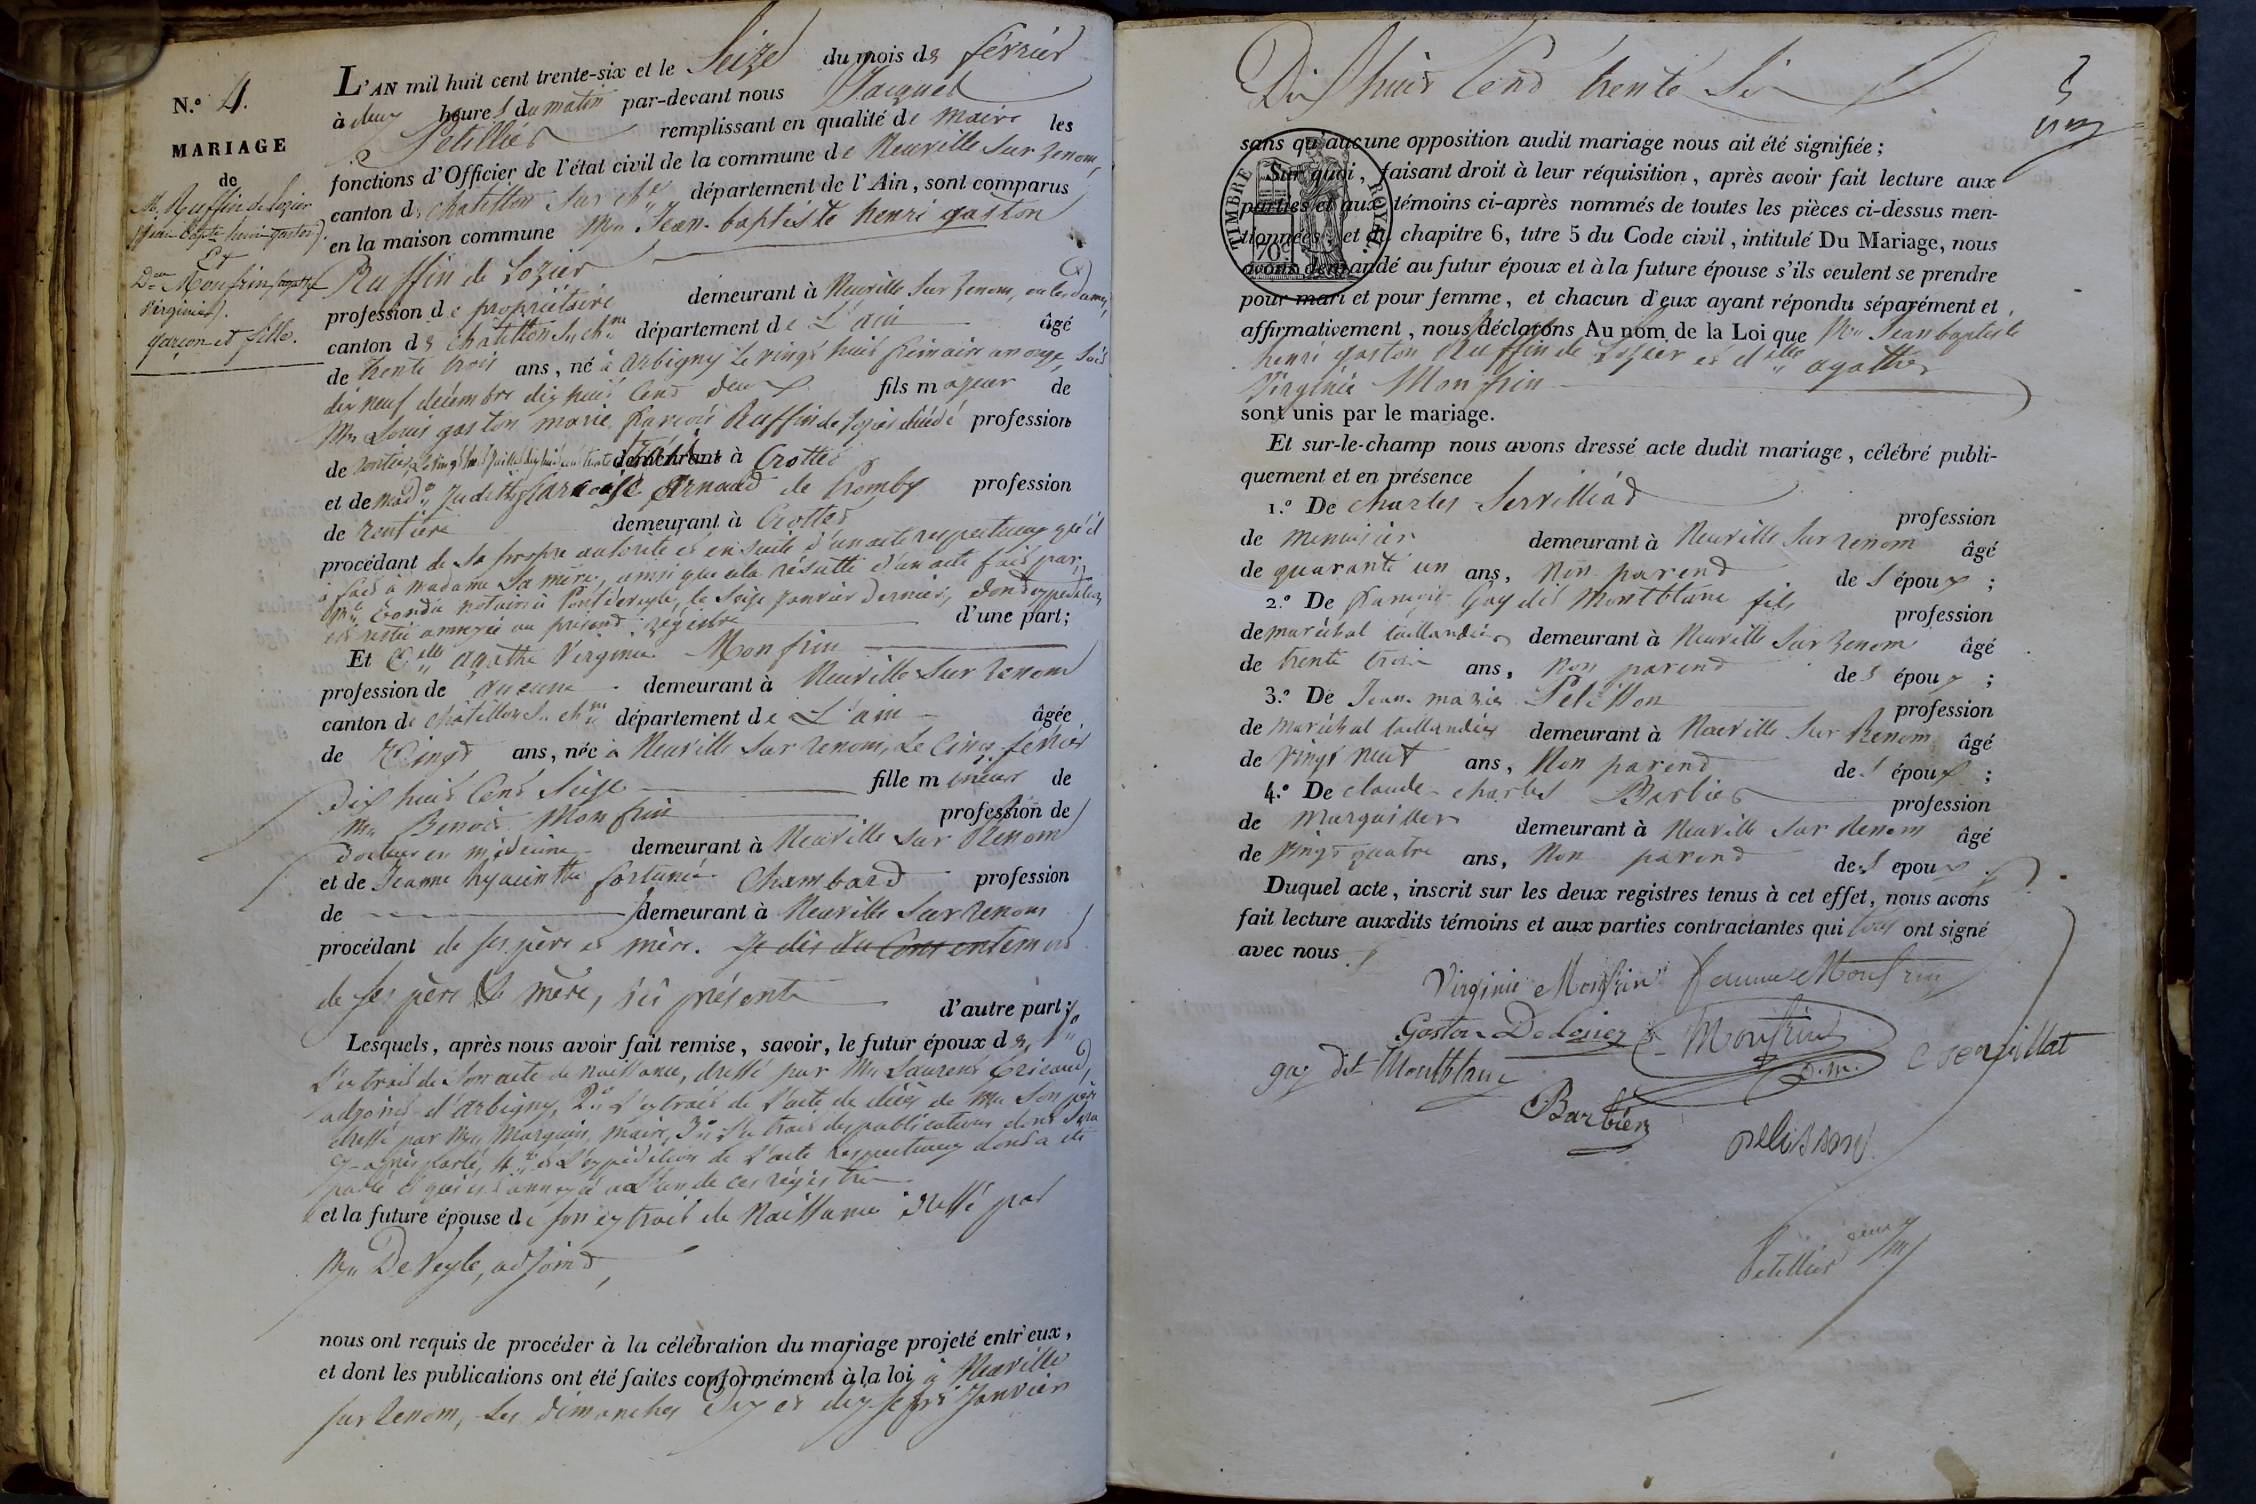 N.º 4.
MARIAGE
de
M. Ruffin de Lozier
(Jean-Bapte henri gaston).
Et
Dlle Monfrin (agathe
Virginie).
garçon et fille.
L'AN mil huit cent trente-six et le Seize du mois de février
à deux heures du matin par-devant nous Jacques
Petellier remplissant en qualité de maire les
fonctions d'Officier de l'état civil de la commune de Neuville sur renom,
canton de chatillon sur chne département de l'Ain, sont comparus
en la maison commune Mr Jean-baptiste henri gaston
Ruffin de Lozier
profession de propriétaire demeurant à Neuville sur renom,
canton de chatillon s. chne département de L'ain âgé
de trente trois ans, né à arbigny le vingt huit frimaire an onze, soit
dix neuf décembre dix huit Cent deux fils majeur de
Mr Louis gaston marie françois Ruffin de Lozier décédé profession
de rentier, demeurant à Crottet
et de madme Judith Arnaud de Cromby profession
de rentière demeurant à Crottet
procédant de sa propre autorité et ensuite d'un acte respectueux qu'il
a fait à madame sa mère, ainsi que cela résulte d'un acte fait par
Me notaire à Pontdeveyle, le seize janvier dernier, dont expédition
est restée annexée au présent registre d'une part;
Et Delle agathe Virginie Monfrin
profession de aucune demeurant à Neuville sur renom
canton de chatillon s. chne département de L'ain âgée
de Vingt ans, née à Neuville sur renom, le Cinq février
Dix huit Cent Seize fille mineur de
Mr Benoit Monfrin profession de
docteur en médecine demeurant à Neuville sur Renom
et de Jeanne hyacinthe fortunée Chambard profession
de demeurant à Neuville sur renom
procédant de ses père et mère. Je dis du Consentement
de ses père & mère, ici présents d'autre part;
Lesquels, après nous avoir fait remise, savoir, le futur époux de
L'extrait de son acte de naissance, dressé par Mr Laurent
adjoint d'arbigny, 2º L'extrait de l'acte de décès de Mr Son père
dressé par Mr Marguin, maire, 3º L'extrait des publications dont sera
ci-après parlé, 4º et L'expédition de l'acte respectueux dont a été
parlé et qui est annexé à l'un de ces régistres
et la future épouse de son extrait de Naissance dressé par
Mr DeVeyle, adjoint,
nous ont requis de procéder à la célébration du mariage projeté entr'eux,
et dont les publications ont été faites conformément à la loi à Neuville
sur Renom, les dimanches dix et dix sept Janvier
Dix huit Cent trente Six
sans qu'aucune opposition audit mariage nous ait été signifiée;
Sur quoi, faisant droit à leur réquisition, après avoir fait lecture aux
parties et aux témoins ci-après nommés de toutes les pièces ci-dessus men-
tionnées, et du chapitre 6, titre 5 du Code civil, intitulé Du Mariage, nous
avons demandé au futur époux et à la future épouse s'ils veulent se prendre
pour mari et pour femme, et chacun d'eux ayant répondu séparément et
affirmativement, nous déclarons Au nom de la Loi que Mr Jean baptiste
henri gaston Ruffin de Lozier et delle agathe
Virginie Monfrin
sont unis par le mariage.
Et sur-le-champ nous avons dressé acte dudit mariage, célébré publi-
quement et en présence
1.º De charles Servilliat profession
de menuisier demeurant à Neuville sur renom âgé
de quarante un ans, non parent des époux;
2.º De françois Gay dit Montblanc fils profession
de maréchal taillandier demeurant à Neuville sur renom âgé
de trente trois ans, non parent des époux;
3.º De Jean marie Pelisson profession
de maréchal taillandier demeurant à Neuville sur Renom âgé
de vingt neuf ans, Non parent des époux;
4.º De claude charles Barbier profession
de Marguiller demeurant à Neuville sur Renom âgé
de vingt quatre ans, Non parent des epoux.
Duquel acte, inscrit sur les deux registres tenus à cet effet, nous avons
fait lecture auxdits témoins et aux parties contractantes qui tous ont signé
avec nous.
TIMBRE ROYAL
70c
Virginie Monfrin femme Monfrin
Gaston Delozier Monfrin
D.m.
C Servillat
gay dit Montblanc
Barbier
pelisson
Petellier